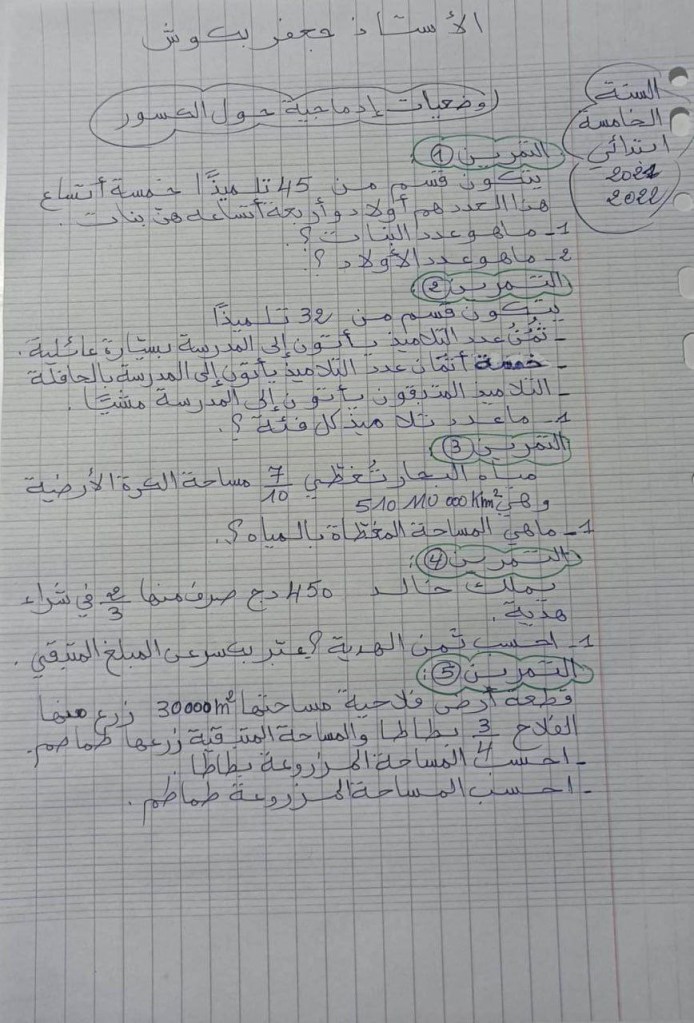 الأستاذ جعفر بكوش
وضعيات إدماجية حول الكسور
السنة
الخامسة
ابتدائي
2021
2022
التمرين 1:
يتكون قسم من 45 تلميذًا خمسة أتساع
هذا العدد هم أولاد وأربعة أتساعه هن بنات.
1- ما هو عدد البنات؟
2- ما هو عدد الأولاد؟
التمرين 2:
يتكون قسم من 32 تلميذًا
- ثُمُنُ عدد التلاميذ يأتون إلى المدرسة بسيارة عائلية.
- خمسة أثمان عدد التلاميذ يأتون إلى المدرسة بالحافلة
- التلاميذ المتبقون يأتون إلى المدرسة مشيًا.
1- ما عدد تلاميذ كل فئة؟
التمرين 3
مياه البحار تُغطّي 7/10 مساحة الكرة الأرضية
وهي 510 110 000 Km²
1- ما هي المساحة المغطاة بالمياه؟
التمرين 4:
يملك خالد 450 دج صرف منها 2/3 في شراء
هدية.
1- احسب ثمن الهدية؟ عتبر بكسر عن المبلغ المتبقي.
التمرين 5:
قطعة أرض فلاحية مساحتها 30000m² زرع منها
الفلاح 3/4 بطاطا والمساحة المتبقية زرعها طماطم.
- احسب المساحة المزروعة بطاطا.
- احسب المساحة المزروعة طماطم.